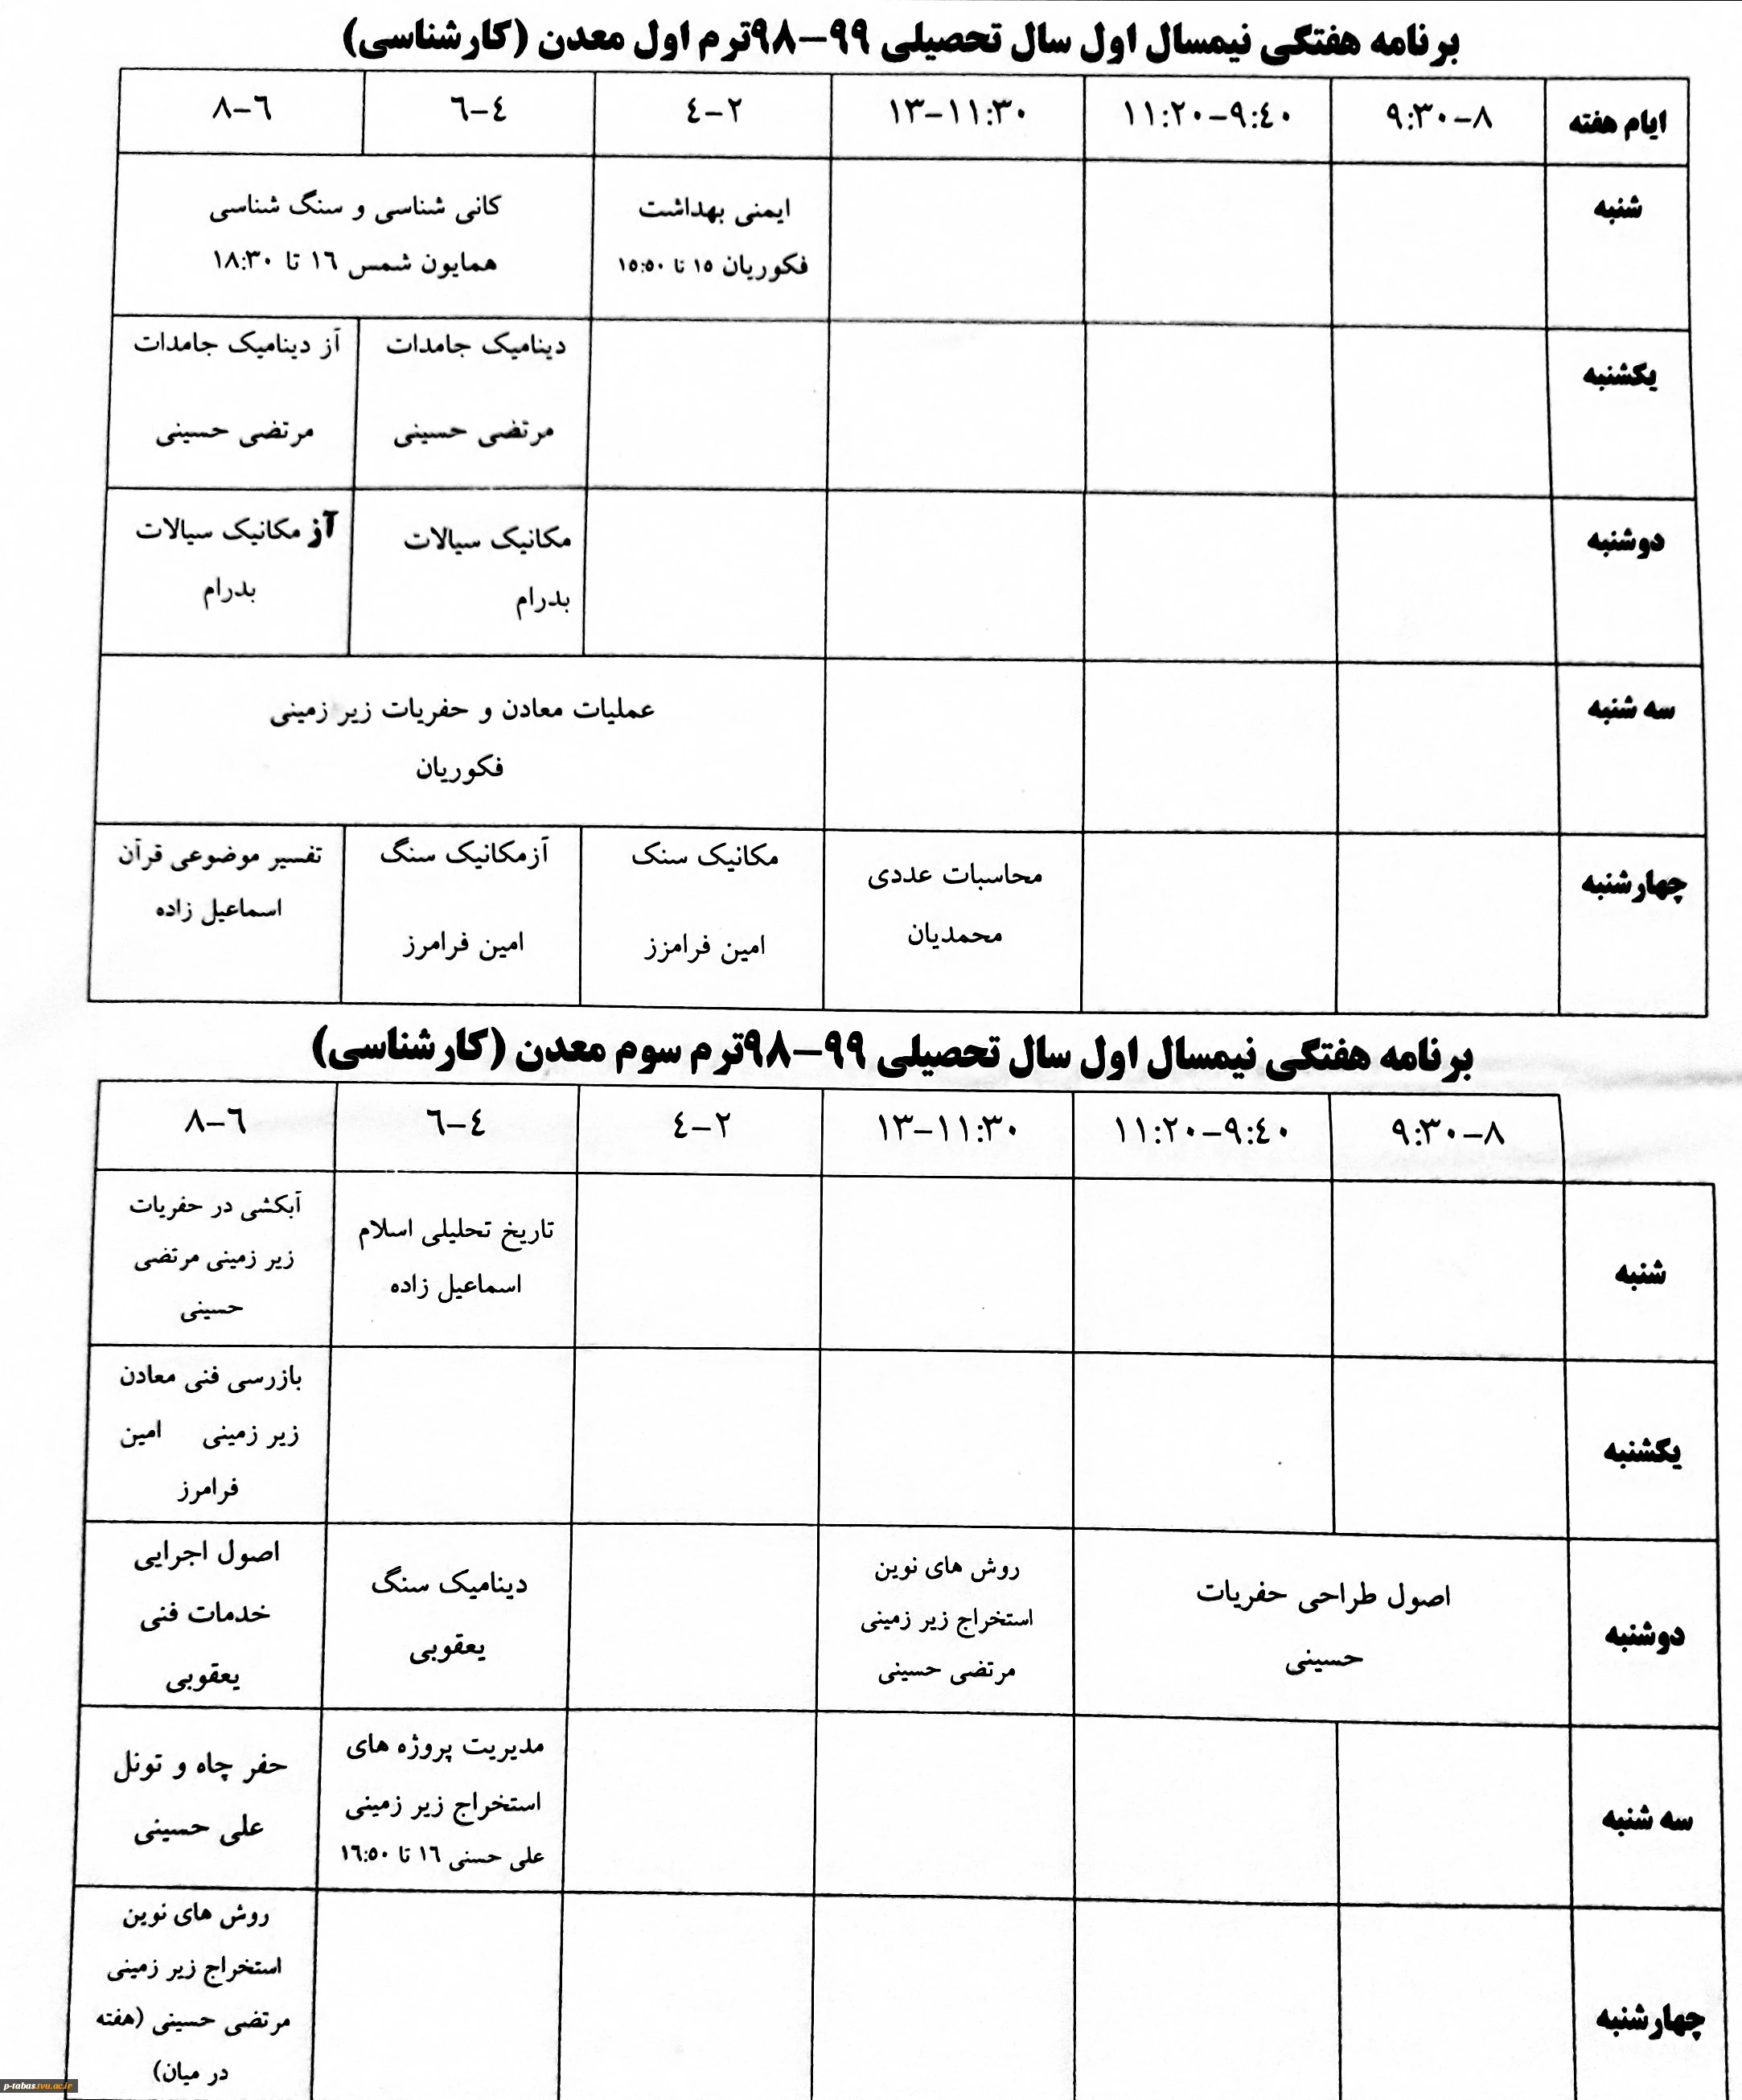 برنامه هفتگی نیمسال اول سال تحصیلی ۹۹-۹۸ترم اول معدن (کارشناسی)
ایام هفته
۸-۹:۳۰
۹:٤۰-۱۱:۲۰
۱۱:۳۰-۱۳
۲-٤
٤-٦
٦-۸
شنبه
ایمنی بهداشت
فکوریان ۱٥ تا ۱٥:٥۰
کانی شناسی و سنگ شناسی
همایون شمس ۱٦ تا ۱۸:۳۰
یکشنبه
دینامیک جامدات
مرتضی حسینی
آز دینامیک جامدات
مرتضی حسینی
دوشنبه
مکانیک سیالات
بدرام
آز مکانیک سیالات
بدرام
سه شنبه
عملیات معادن و حفریات زیر زمینی
فکوریان
چهارشنبه
محاسبات عددی
محمدیان
مکانیک سنک
امین فرامزز
آزمکانیک سنگ
امین فرامرز
تفسیر موضوعی قرآن
اسماعیل زاده
برنامه هفتگی نیمسال اول سال تحصیلی ۹۹-۹۸ترم سوم معدن (کارشناسی)
۸-۹:۳۰
۹:٤۰-۱۱:۲۰
۱۱:۳۰-۱۳
۲-٤
٤-٦
٦-۸
شنبه
تاریخ تحلیلی اسلام
اسماعیل زاده
آبکشی در حفریات
زیر زمینی مرتضی
حسینی
یکشنبه
بازرسی فنی معادن
زیر زمینی امین
فرامرز
دوشنبه
اصول طراحی حفریات
حسینی
روش های نوین
استخراج زیر زمینی
مرتضی حسینی
دینامیک سنگ
یعقوبی
اصول اجرایی
خدمات فنی
یعقوبی
سه شنبه
مدیریت پروژه های
استخراج زیر زمینی
علی حسنی ۱٦ تا ۱٦:٥۰
حفر چاه و تونل
علی حسینی
چهارشنبه
روش های نوین
استخراج زیر زمینی
مرتضی حسینی (هفته
در میان)
p-tabas.tvu.ac.ir